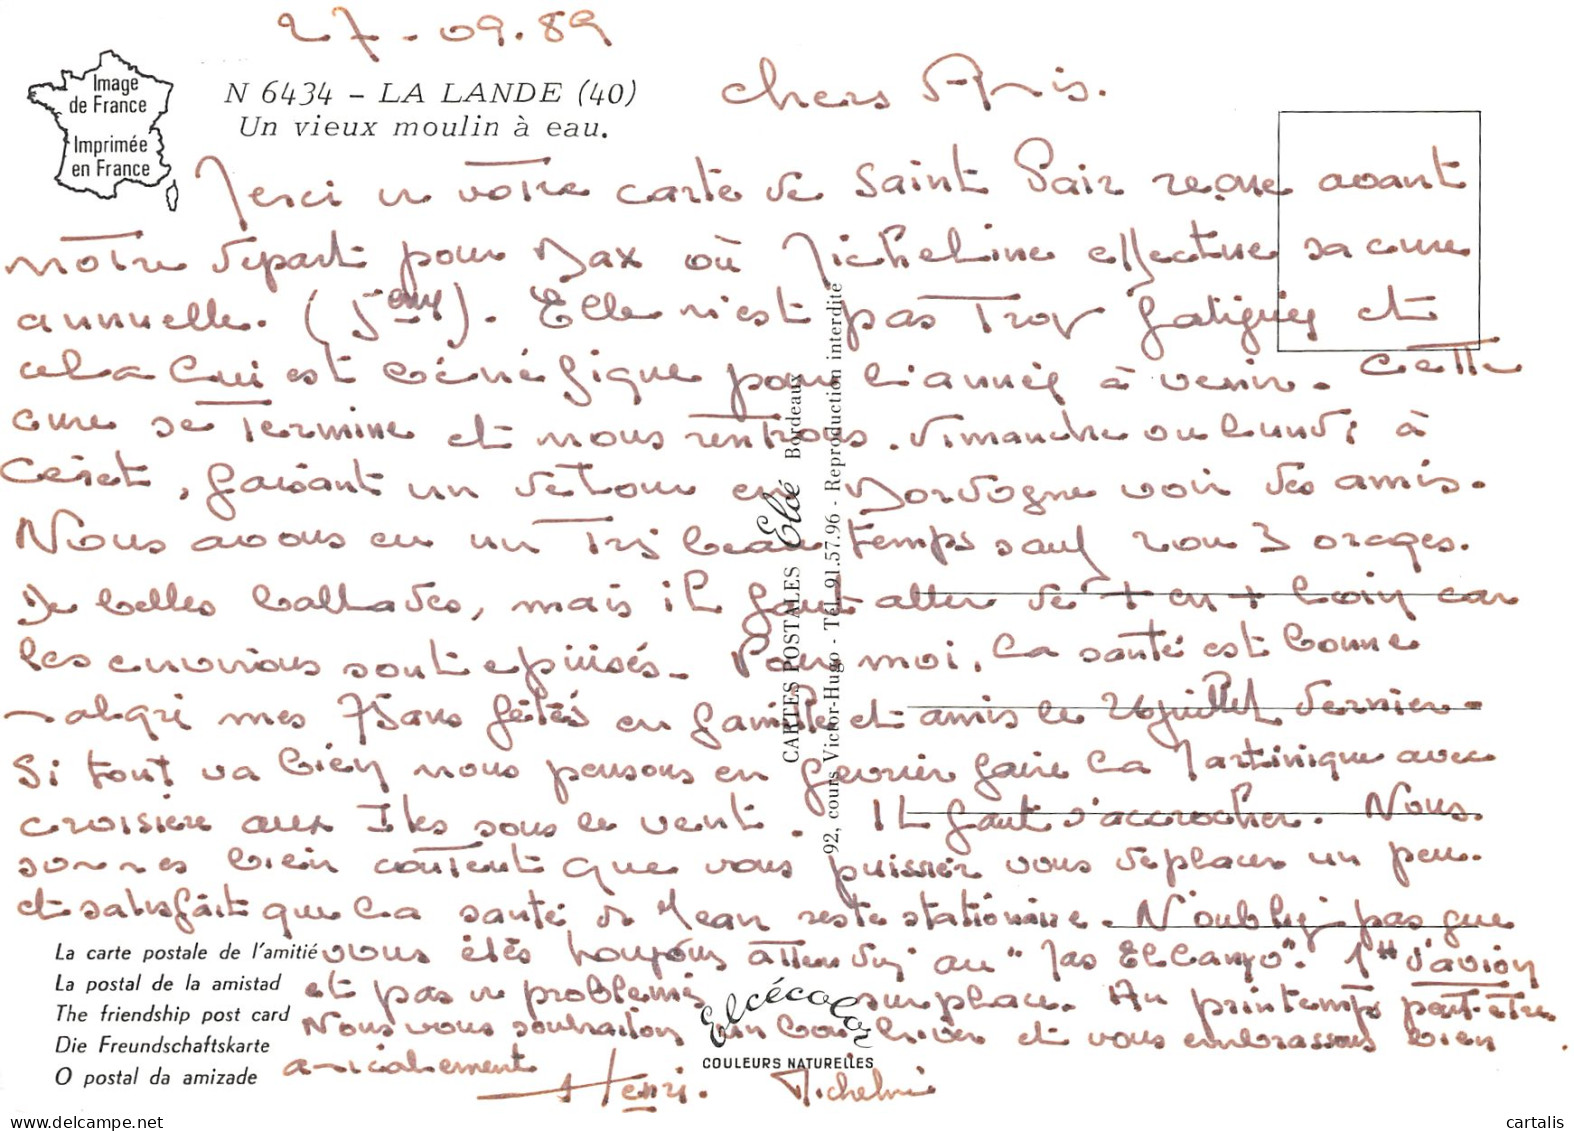 27-09.89
Image
de France
Imprimée
en France
N 6434 - LA LANDE (40)
Un vieux moulin à eau.
chers Amis.
Merci de votre carte de Saint Pair reçue avant
notre départ pour Dax où Micheline effectue sa cure
annuelle. (5eme). Elle n'est pas trop fatiguée et
cela lui est bénéfique pour l'année à venir. Cette
cure se termine et nous rentrons dimanche ou lundi à
Céret, faisant un détour en Dordogne voir des amis.
Nous avons eu un très beau temps sauf 2 ou 3 orages.
De belles ballades, mais il faut aller de + en + loin car
les environs sont épuisés. Pour moi, la santé est bonne
malgré mes 75 ans fêtés en famille et amis le 26 juillet dernier.
Si tout va bien nous pensons en fevrier faire la Martinique avec
croisière aux Iles sous le vent. Il faut s'accrocher. Nous
sommes bien content que vous puissiez vous déplacer un peu
et satisfait que la santé de Jean reste stationnaire. N'oubliez pas que
vous êtes toujours attendus au "Mas El Canyo". 1H d'avion
et pas de problemes sur place. Au printemps peut-être.
Nous vous souhaitons un bon hiver et vous embrassons bien
amicalement
Henri. Micheline
La carte postale de l'amitié
La postal de la amistad
The friendship post card
Die Freundschaftskarte
O postal da amizade
CARTES POSTALES Eloé Bordeaux
92, cours Victor-Hugo - Tél. 91.57.96 - Reproduction interdite
Elcécolor
COULEURS NATURELLES
www.delcampe.net
cartalis